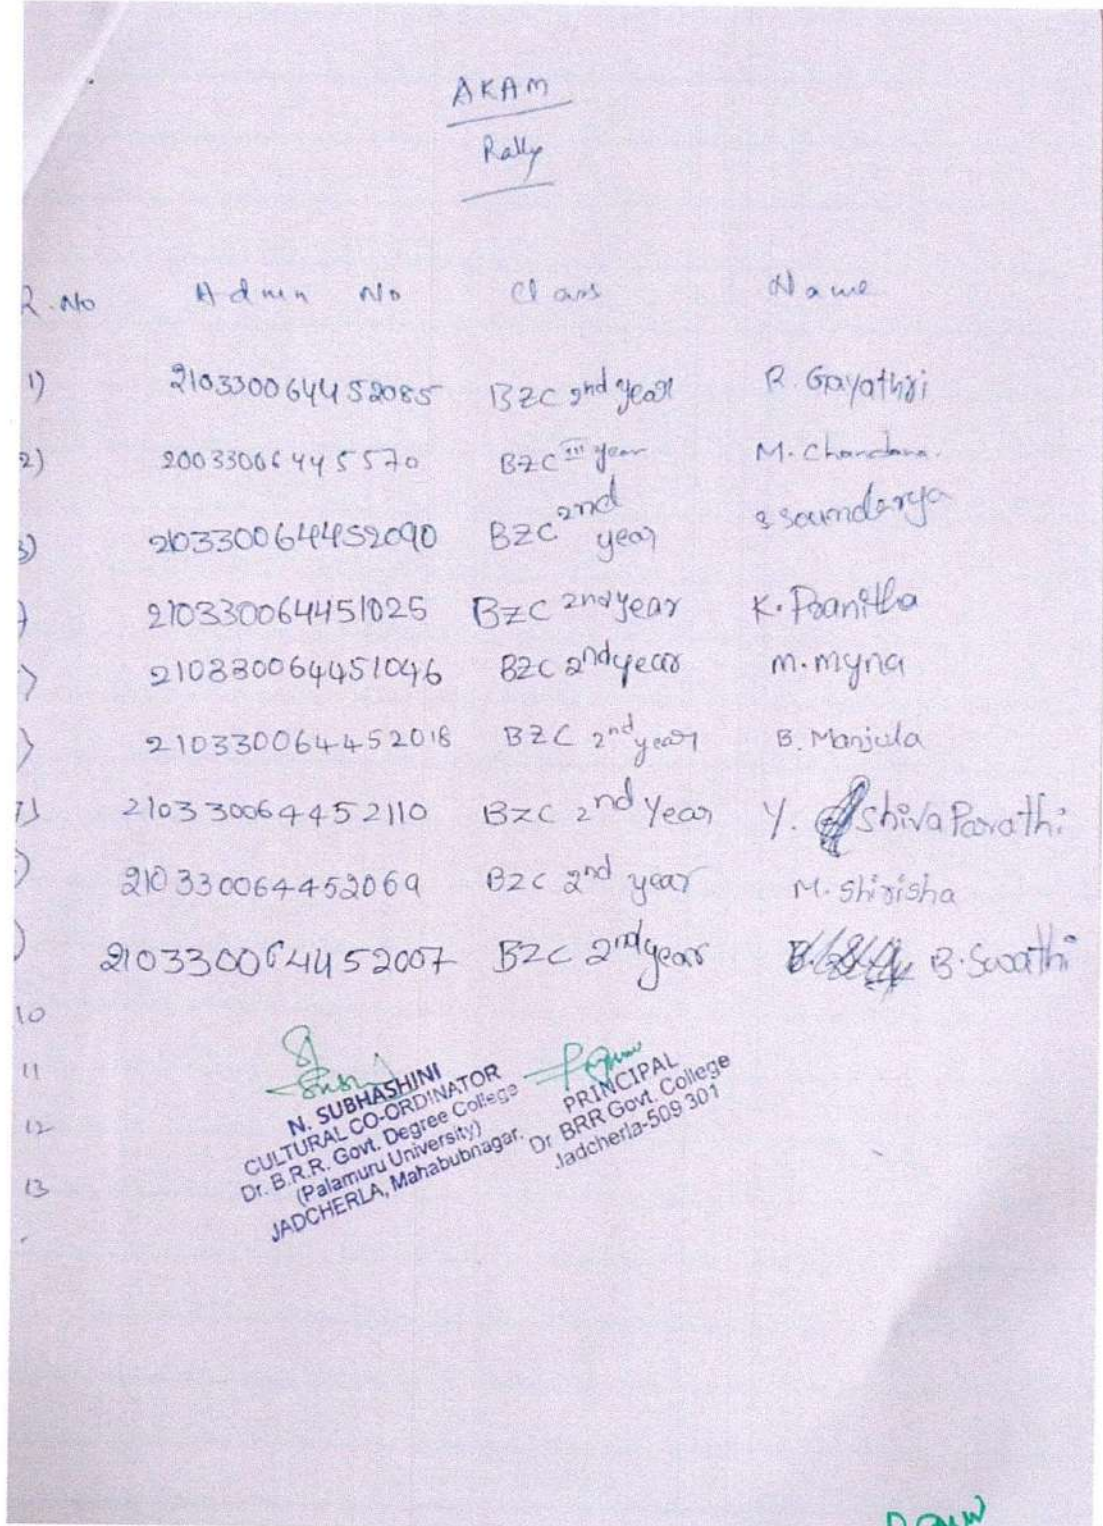 AKAM
Rally
R.No Admn No Class Name
1) 210330064452085 BZC 2nd year R. Gayathri
2) 20033006445570 BZC III year M. Chandana.
3) 210330064452090 BZC 2nd year S Soundarya
) 210330064451025 BZC 2nd year K. Pranitha
) 210330064451046 BZC 2nd year M. Myna
) 210330064452018 BZC 2nd year B. Manjula
7) 210330064452110 BZC 2nd Year Y. Shiva Parvathi
) 210330064452069 BZC 2nd year M. Shirisha
) 210330064452007 BZC 2nd year B. Swathi
10
11
12
13
N. SUBHASHINI
CULTURAL CO-ORDINATOR
Dr. B.R.R. Govt. Degree College
(Palamuru University)
JADCHERLA, Mahabubnagar.
PRINCIPAL
Dr BRR Govt. College
Jadcherla-509 301